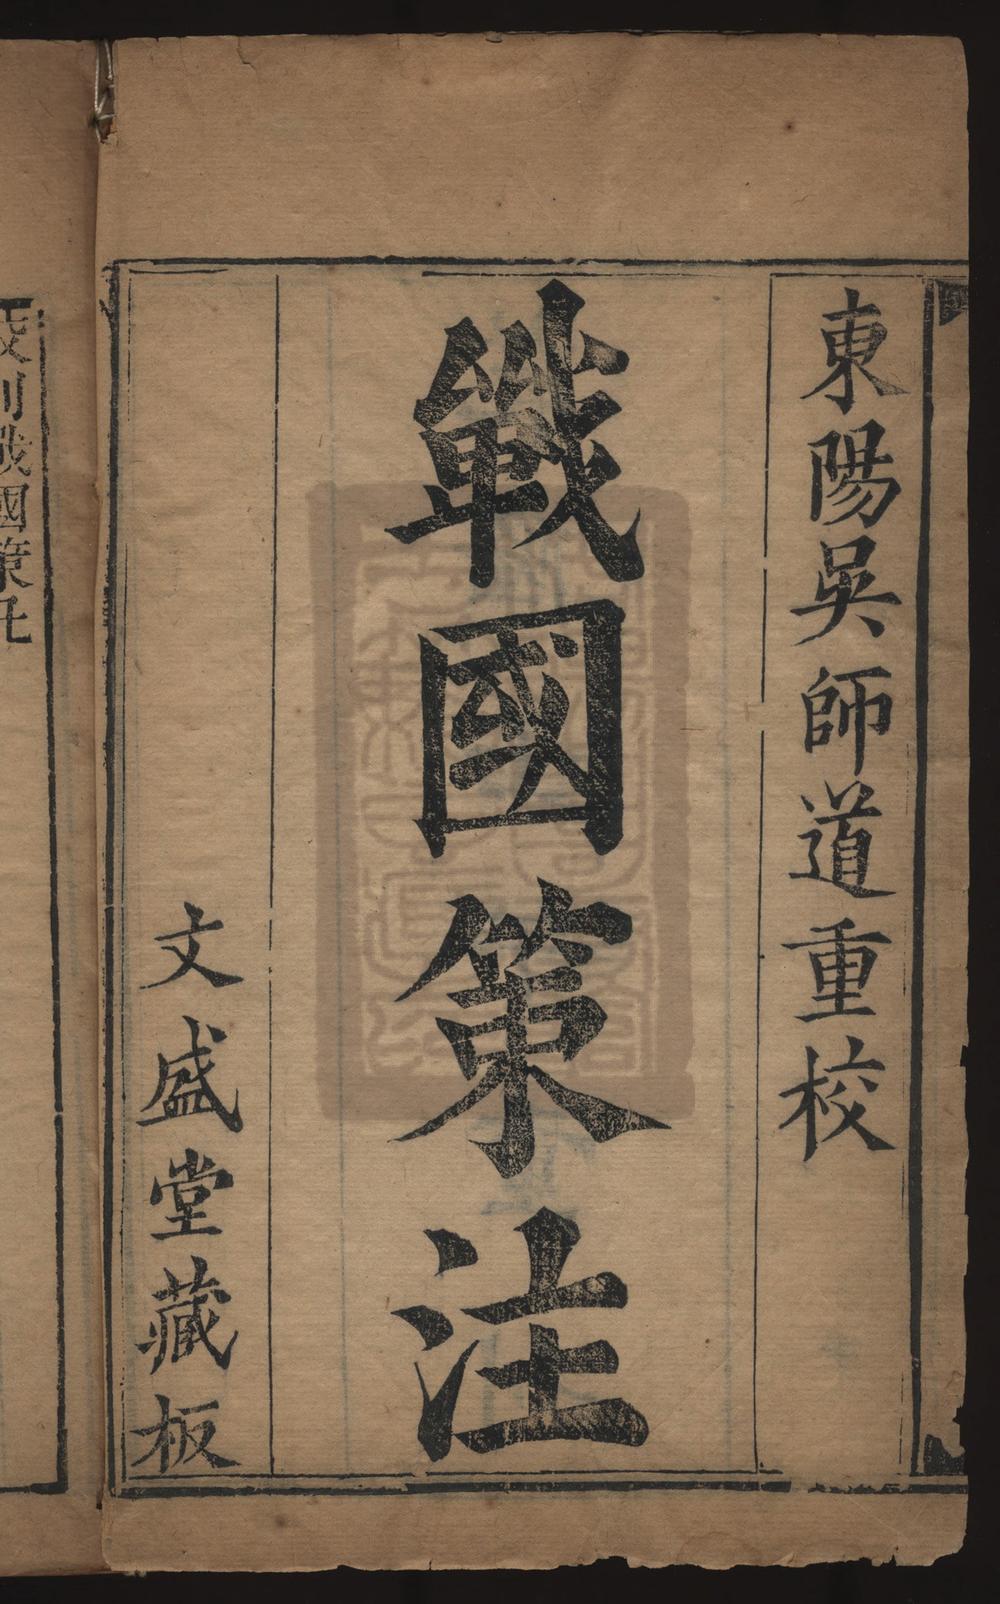 東陽吳師道重校
戰國策注
文盛堂藏板